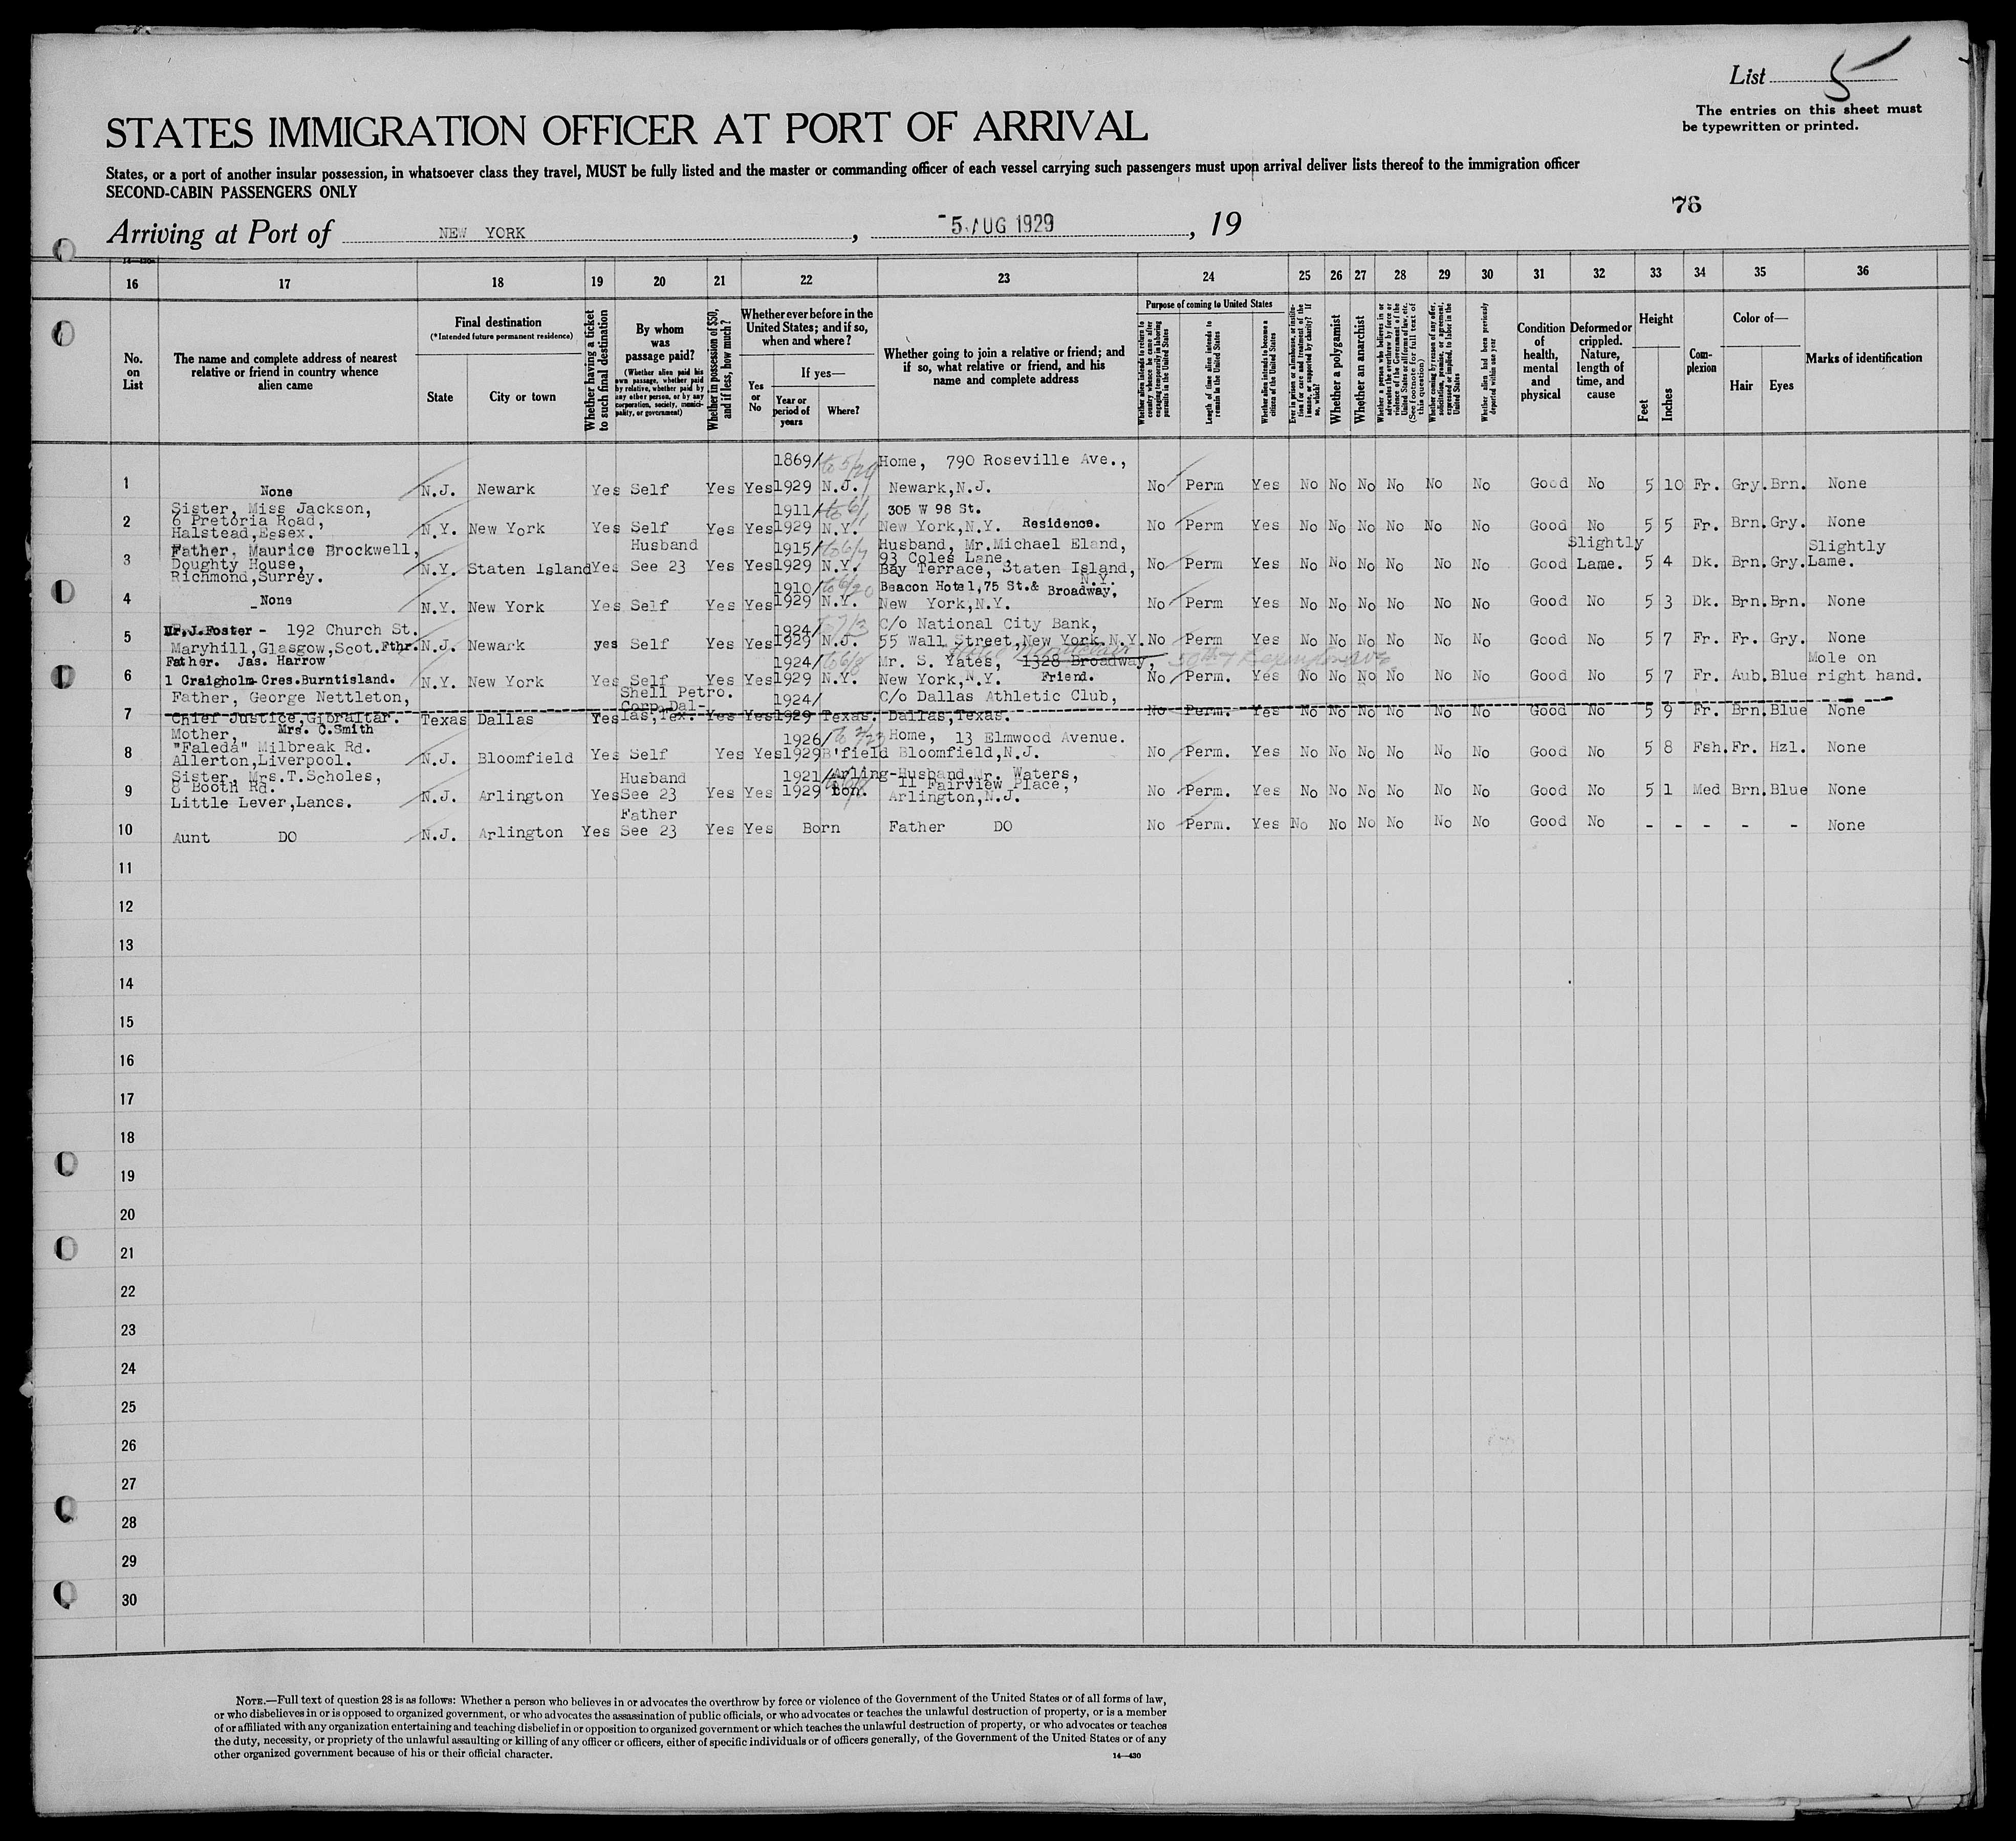 List 5
The entries on this sheet must
be typewritten or printed.
STATES IMMIGRATION OFFICER AT PORT OF ARRIVAL
States, or a port of another insular possession, in whatsoever class they travel, MUST be fully listed and the master or commanding officer of each vessel carrying such passengers must upon arrival deliver lists thereof to the immigration officer
SECOND-CABIN PASSENGERS ONLY
76
Arriving at Port of NEW YORK, 5 AUG 1929, 19
16 17 18 19 20 21 22 23 24 25 26 27 28 29 30 31 32 33 34 35 36
No. on List
The name and complete address of nearest relative or friend in country whence alien came
Final destination
(*Intended future permanent residence)
State
City or town
Whether having a ticket to such final destination
By whom was passage paid?
(Whether alien paid his own passage, whether paid by relative, whether paid by any other person, or by any corporation, society, municipality, or government)
Whether in possession of $50, and if less, how much?
Whether ever before in the United States; and if so, when and where?
Yes or No
If yes—
Year or period of years
Where?
Whether going to join a relative or friend; and if so, what relative or friend, and his name and complete address
Purpose of coming to United States
Whether alien intends to return to country whence he came after engaging temporarily in laboring pursuits in the United States
Length of time alien intends to remain in the United States
Whether alien intends to become a citizen of the United States
Ever in prison or almshouse, or institution for care and treatment of the insane, or supported by charity? If so, which?
Whether a polygamist
Whether an anarchist
Whether a person who believes in or advocates the overthrow by force or violence of the Government of the United States or all forms of law, etc. (See footnote for full text of this question)
Whether coming by reason of any offer, solicitation, promise, or agreement, expressed or implied, to labor in the United States
Whether alien had been previously deported within one year
Condition of health, mental and physical
Deformed or crippled. Nature, length of time, and cause
Height
Feet
Inches
Complexion
Color of—
Hair
Eyes
Marks of identification
1869/ Home, 790 Roseville Ave.,
1 None N.J. Newark Yes Self Yes Yes 1929 N.J. Newark,N.J. No Perm Yes No No No No No No Good No 5 10 Fr. Gry. Brn. None
Sister, Miss Jackson, 1911/ 305 W 98 St.
2 6 Pretoria Road,
Halstead,Essex. N.Y. New York Yes Self Yes Yes 1929 N.Y. New York,N.Y. Residence. No Perm Yes No No No No No No Good No 5 5 Fr. Brn. Gry. None
Father, Maurice Brockwell, Husband 1915/ Husband, Mr.Michael Eland, Slightly Slightly
3 Doughty House, 93 Coles Lane,
Richmond,Surrey. N.Y. Staten Island Yes See 23 Yes Yes 1929 N.Y. Bay Terrace, Staten Island, N.Y. No Perm Yes No No No No No No Good Lame. 5 4 Dk. Brn. Gry. Lame.
1910/ Beacon Hotel,75 St.& Broadway,
4 None N.Y. New York Yes Self Yes Yes 1929 N.Y. New York,N.Y. No Perm Yes No No No No No No Good No 5 3 Dk. Brn. Brn. None
Mr.J.Foster - 192 Church St. 1924/ C/o National City Bank,
5 Maryhill,Glasgow,Scot.Fthr. N.J. Newark yes Self Yes Yes 1929 N.J. 55 Wall Street,New York,N.Y. No Perm Yes No No No No No No Good No 5 7 Fr. Fr. Gry. None
Father. Jas. Harrow 1924/ Mr. S. Yates, 1328 Broadway, Mole on
6 1 Craigholm Cres.Burntisland. N.Y. New York Yes Self Yes Yes 1929 N.Y. New York,N.Y. Friend. No Perm. Yes No No No No No No Good No 5 7 Fr. Aub. Blue right hand.
Father, George Nettleton, Shell Petro. 1924/ C/o Dallas Athletic Club,
7 Chief Justice,Gibraltar. Texas Dallas Yes Corp.Dallas,Tex. Yes Yes 1929 Texas. Dallas,Texas. No Perm. Yes No No No No No No Good No 5 9 Fr. Brn. Blue None
Mother, Mrs. C.Smith 1926/ Home, 13 Elmwood Avenue.
8 "Faleda" Milbreak Rd.
Allerton,Liverpool. N.J. Bloomfield Yes Self Yes Yes 1929 B'field Bloomfield,N.J. No Perm. Yes No No No No No No Good No 5 8 Fsh. Fr. Hzl. None
Sister, Mrs.T.Scholes, Husband 1921/ Arling- Husband,Mr. Waters,
9 8 Booth Rd. See 23 Yes Yes 1929 ton. 11 Fairview Place,
Little Lever,Lancs. N.J. Arlington Yes Arlington,N.J. No Perm. Yes No No No No No No Good No 5 1 Med Brn. Blue None
Father
10 Aunt DO N.J. Arlington Yes See 23 Yes Yes Born Father DO No Perm. Yes No No No No No No Good No - - - - - None
11
12
13
14
15
16
17
18
19
20
21
22
23
24
25
26
27
28
29
30
NOTE.—Full text of question 28 is as follows: Whether a person who believes in or advocates the overthrow by force or violence of the Government of the United States or of all forms of law,
or who disbelieves in or is opposed to organized government, or who advocates the assassination of public officials, or who advocates or teaches the unlawful destruction of property, or is a member
of or affiliated with any organization entertaining and teaching disbelief in or opposition to organized government or which teaches the unlawful destruction of property, or who advocates or teaches
the duty, necessity, or propriety of the unlawful assaulting or killing of any officer or officers, either of specific individuals or of officers generally, of the Government of the United States or of any
other organized government because of his or their official character.
14—430